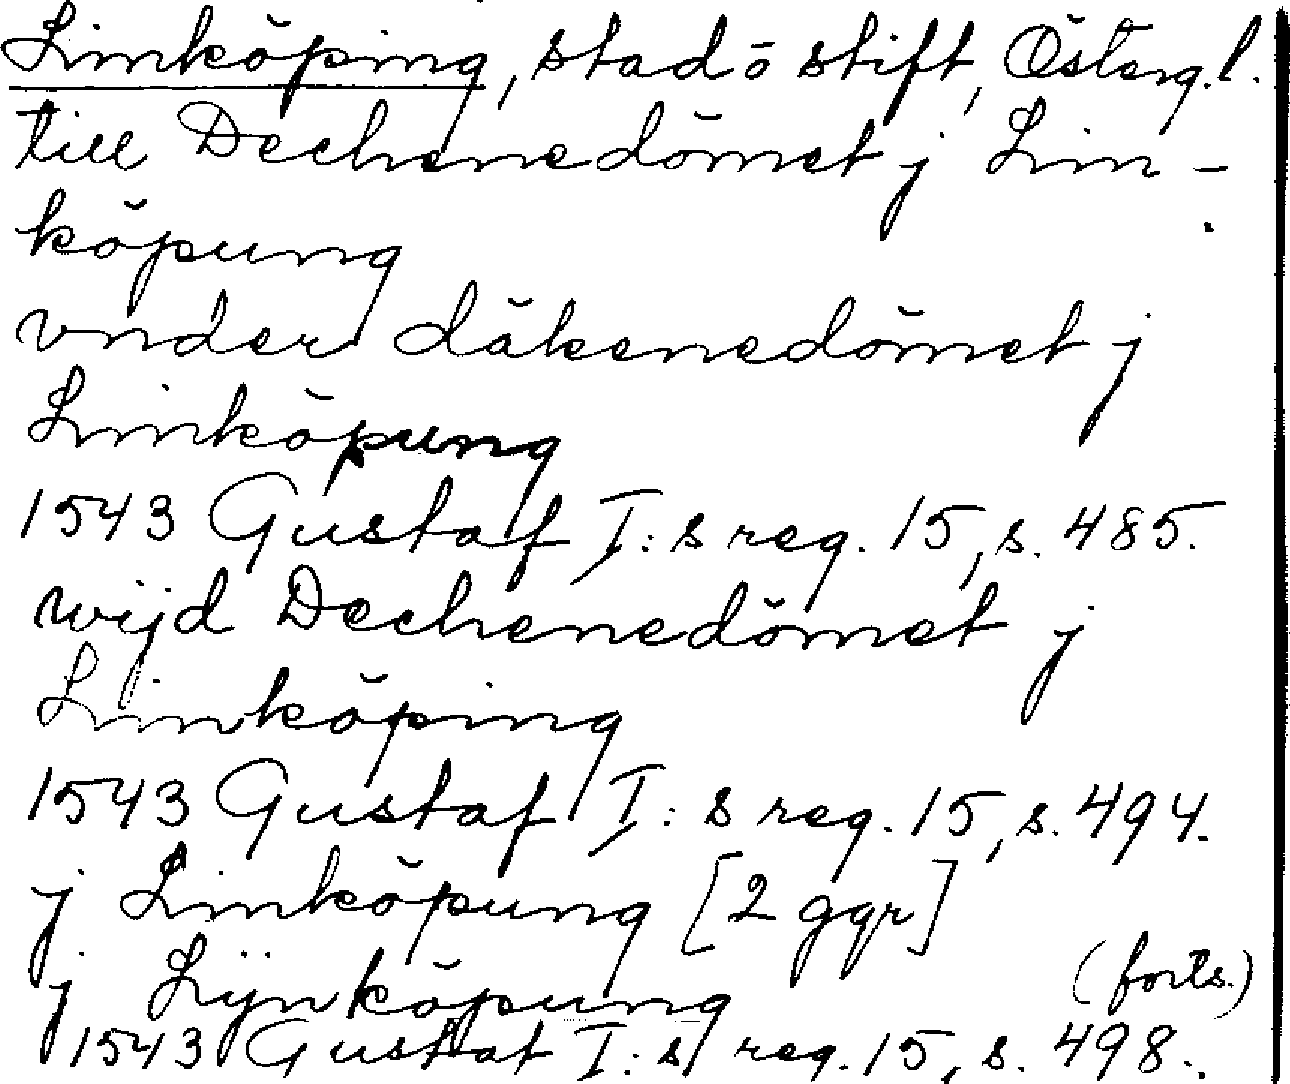 Linköping, stad o stift, Österg. l.
till Dechenedömet j Lin-
köpung
vnder däkenedömet j
Linköpung
1543 Gustaf I:s reg. 15, s. 485.
wijd Dechenedömet j
Linköping
1543 Gustaf I:s reg. 15, s. 494.
j Linköpung [2 ggr]
j Lijnköpung (forts.)
1543 Gustaf I:s reg. 15, s. 498.